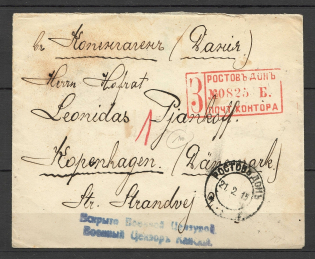 въ Копенгагенъ (Данія)
Herrn Hofrat
Leonidas Pjankoff
Kopenhagen. (Danemark)
Str. Strandvej
З РОСТОВЪ ДОНЪ
№0825 Б.
ПОЧТ. КОНТОРА
РОСТОВЪ ДОНЪ
21.2.15
Вскрыто Военной Цензурой
Военный Цензоръ